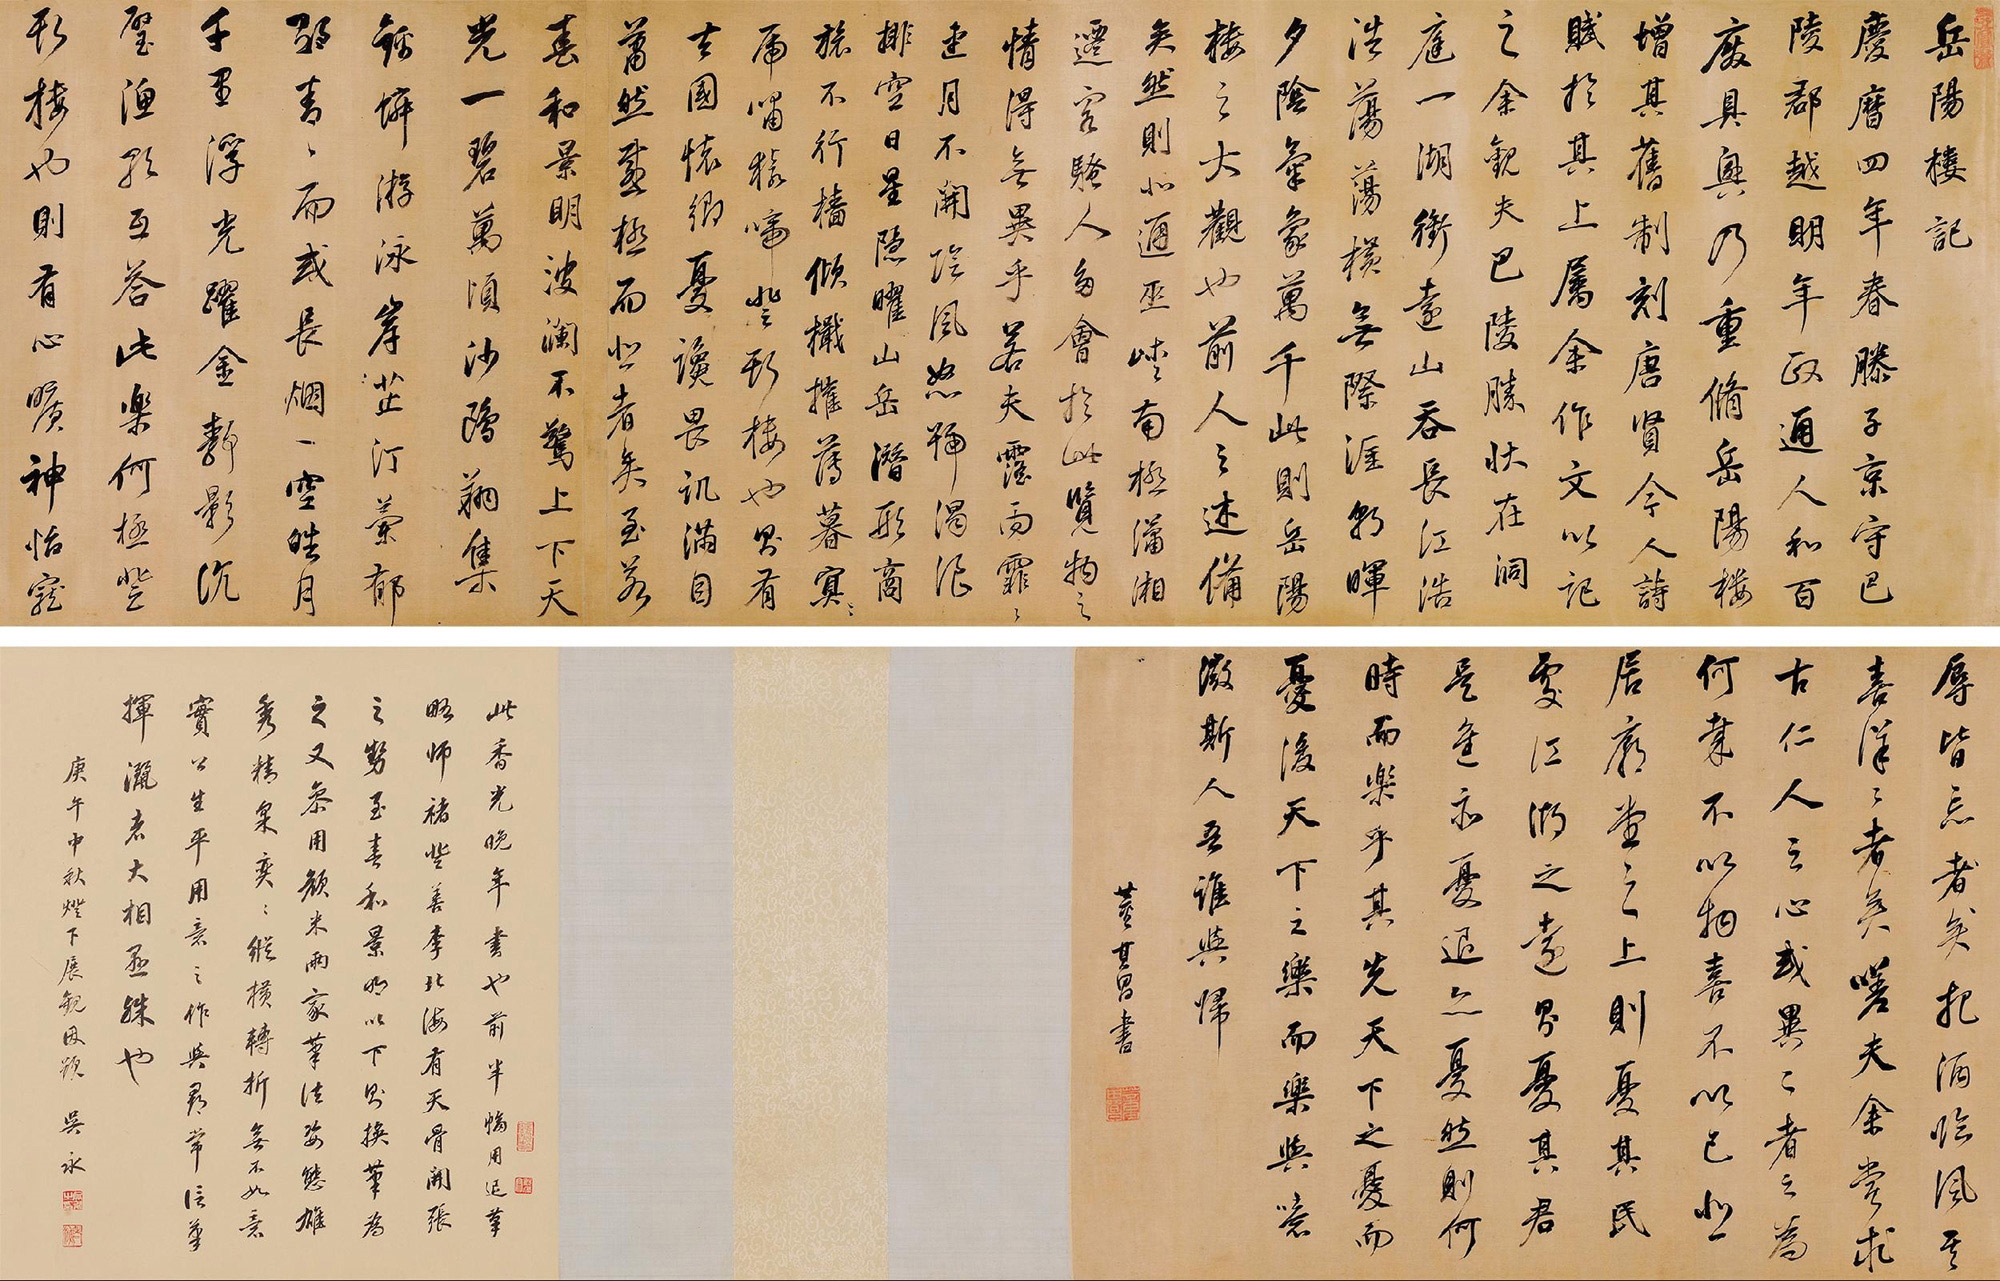 岳陽樓記
慶曆四年春滕子京守巴
陵郡越明年政通人和百
廢具興乃重脩岳陽樓
增其舊制刻唐賢今人詩
賦於其上屬余作文以記
之余觀夫巴陵勝狀在洞
庭一湖銜遠山吞長江浩
浩蕩蕩橫無際涯朝暉
夕陰氣象萬千此則岳陽
樓之大觀也前人之述備
矣然則北通巫峽南極瀟湘
遷客騷人多會於此覽物之
情得無異乎若夫霪雨霏〻
連月不開陰風怒號濁浪
排空日星隱曜山岳潛形商
旅不行檣傾檝摧薄暮冥〻
虎嘯猿啼登斯樓也則有
去國懷鄉憂讒畏譏滿目
蕭然感極而悲者矣至若
春和景明波瀾不驚上下天
光一碧萬頃沙鷗翔集
錦鱗游泳岸芷汀蘭郁
郁青〻而或長烟一空皓月
千里浮光躍金靜影沉
璧漁歌互答此樂何極登
斯樓也則有心曠神怡寵
辱皆忘者矣把酒臨風其
喜洋〻者矣嗟夫余嘗求
古仁人之心或異二者之為
何業不以物喜不以己悲
居廟堂之上則憂其民
處江湖之遠則憂其君
是進亦憂退亦憂然則何
時而樂乎其先天下之憂而
憂後天下之樂而樂與噫
微斯人吾誰與歸
董其昌書
此香光晚年書也前半幅用退筆
略師褚登善李北海有天骨開張
之勢至春和景明以下則換筆為
之又參用顏米兩家筆法姿態雄
秀精采奕〻縱橫轉折無不如意
實公生平用意之作與尋常信筆
揮灑者大相逕殊也
庚午中秋燈下展觀因題 吳永